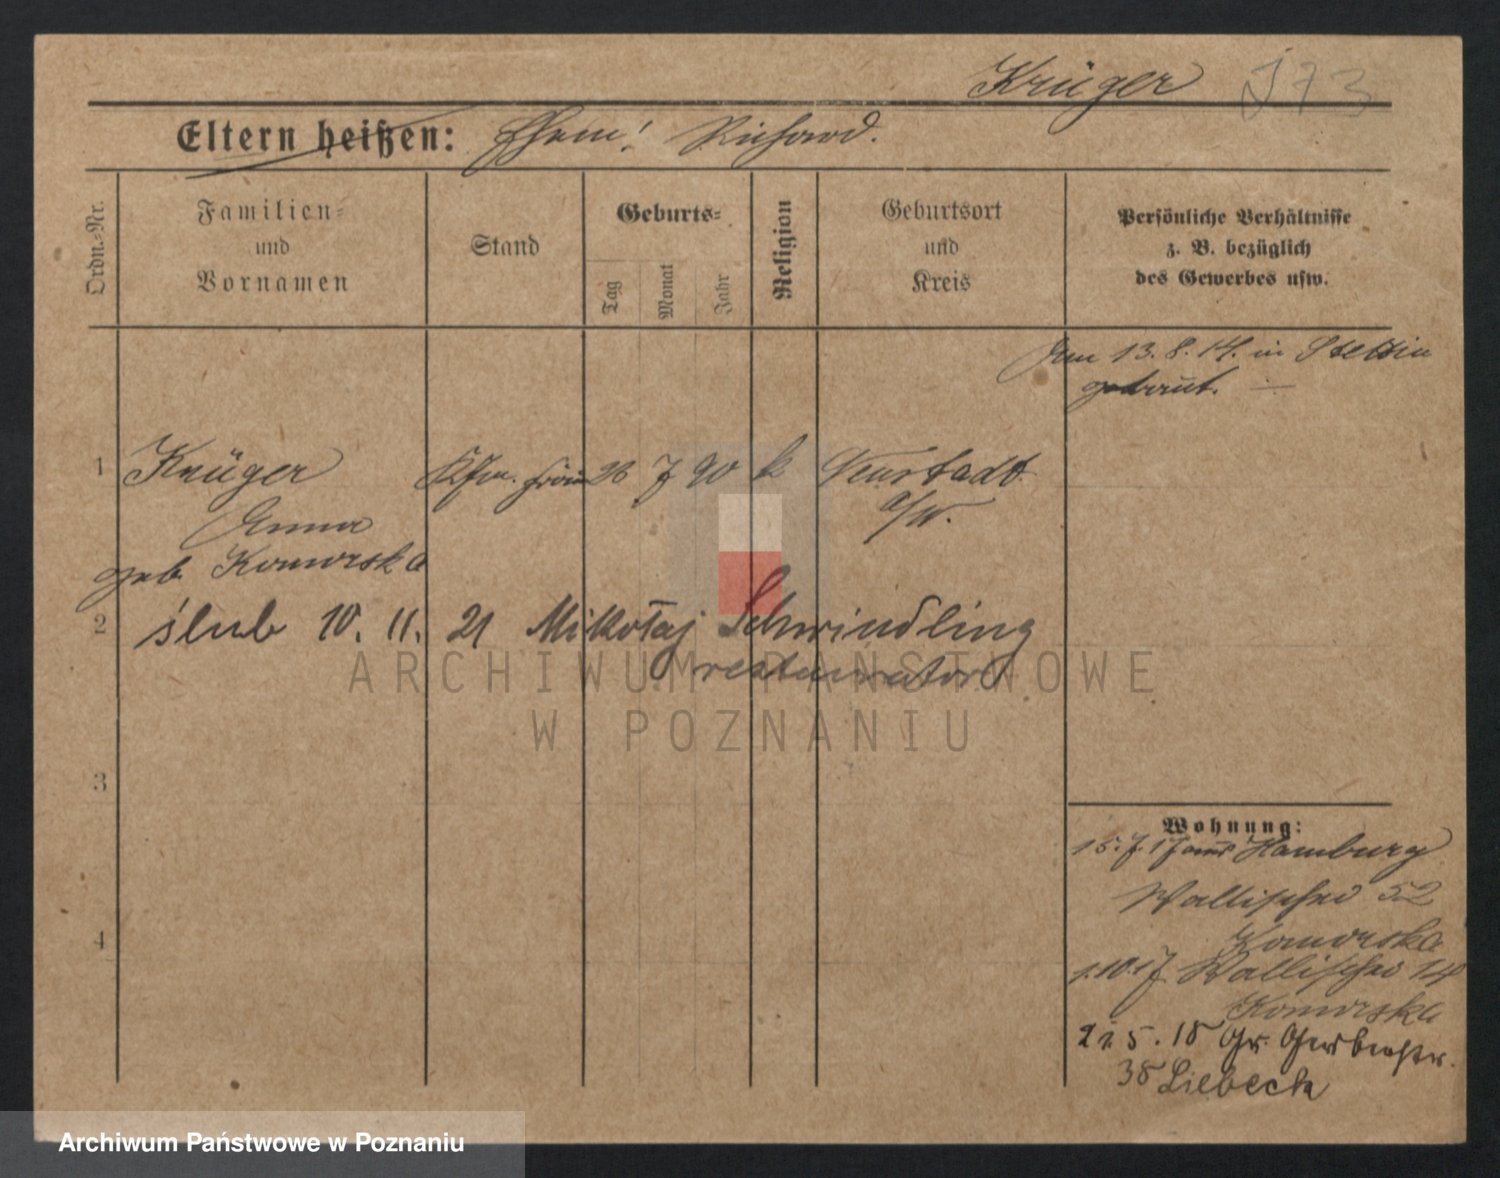 Krüger J73
Eltern heißen: Ehem! Richard.
Ordn.-Nr.
Familien-
und
Vornamen
Stand
Geburts-
Tag
Monat
Jahr
Religion
Geburtsort
und
Kreis
Persönliche Verhältnisse
z. B. bezüglich
des Gewerbes usw.
Am 13.8.14. in Stettin
getraut.
1 Krüger Kfm. frau 26 7 90 k Neustadt
Anna a/W.
geb. Komorska
2 ślub 10. 11. 21 Mikołaj Schwindling
restaurator
ARCHIWUM PAŃSTWOWE
W POZNANIU
3
4
Wohnung:
15.7.17 aus Hamburg
Wallischei 52
Komorska
1.10.17 Wallischei 14
Komorska
5.18 Gr. Gerberstr.
38 Liebeck
Archiwum Państwowe w Poznaniu